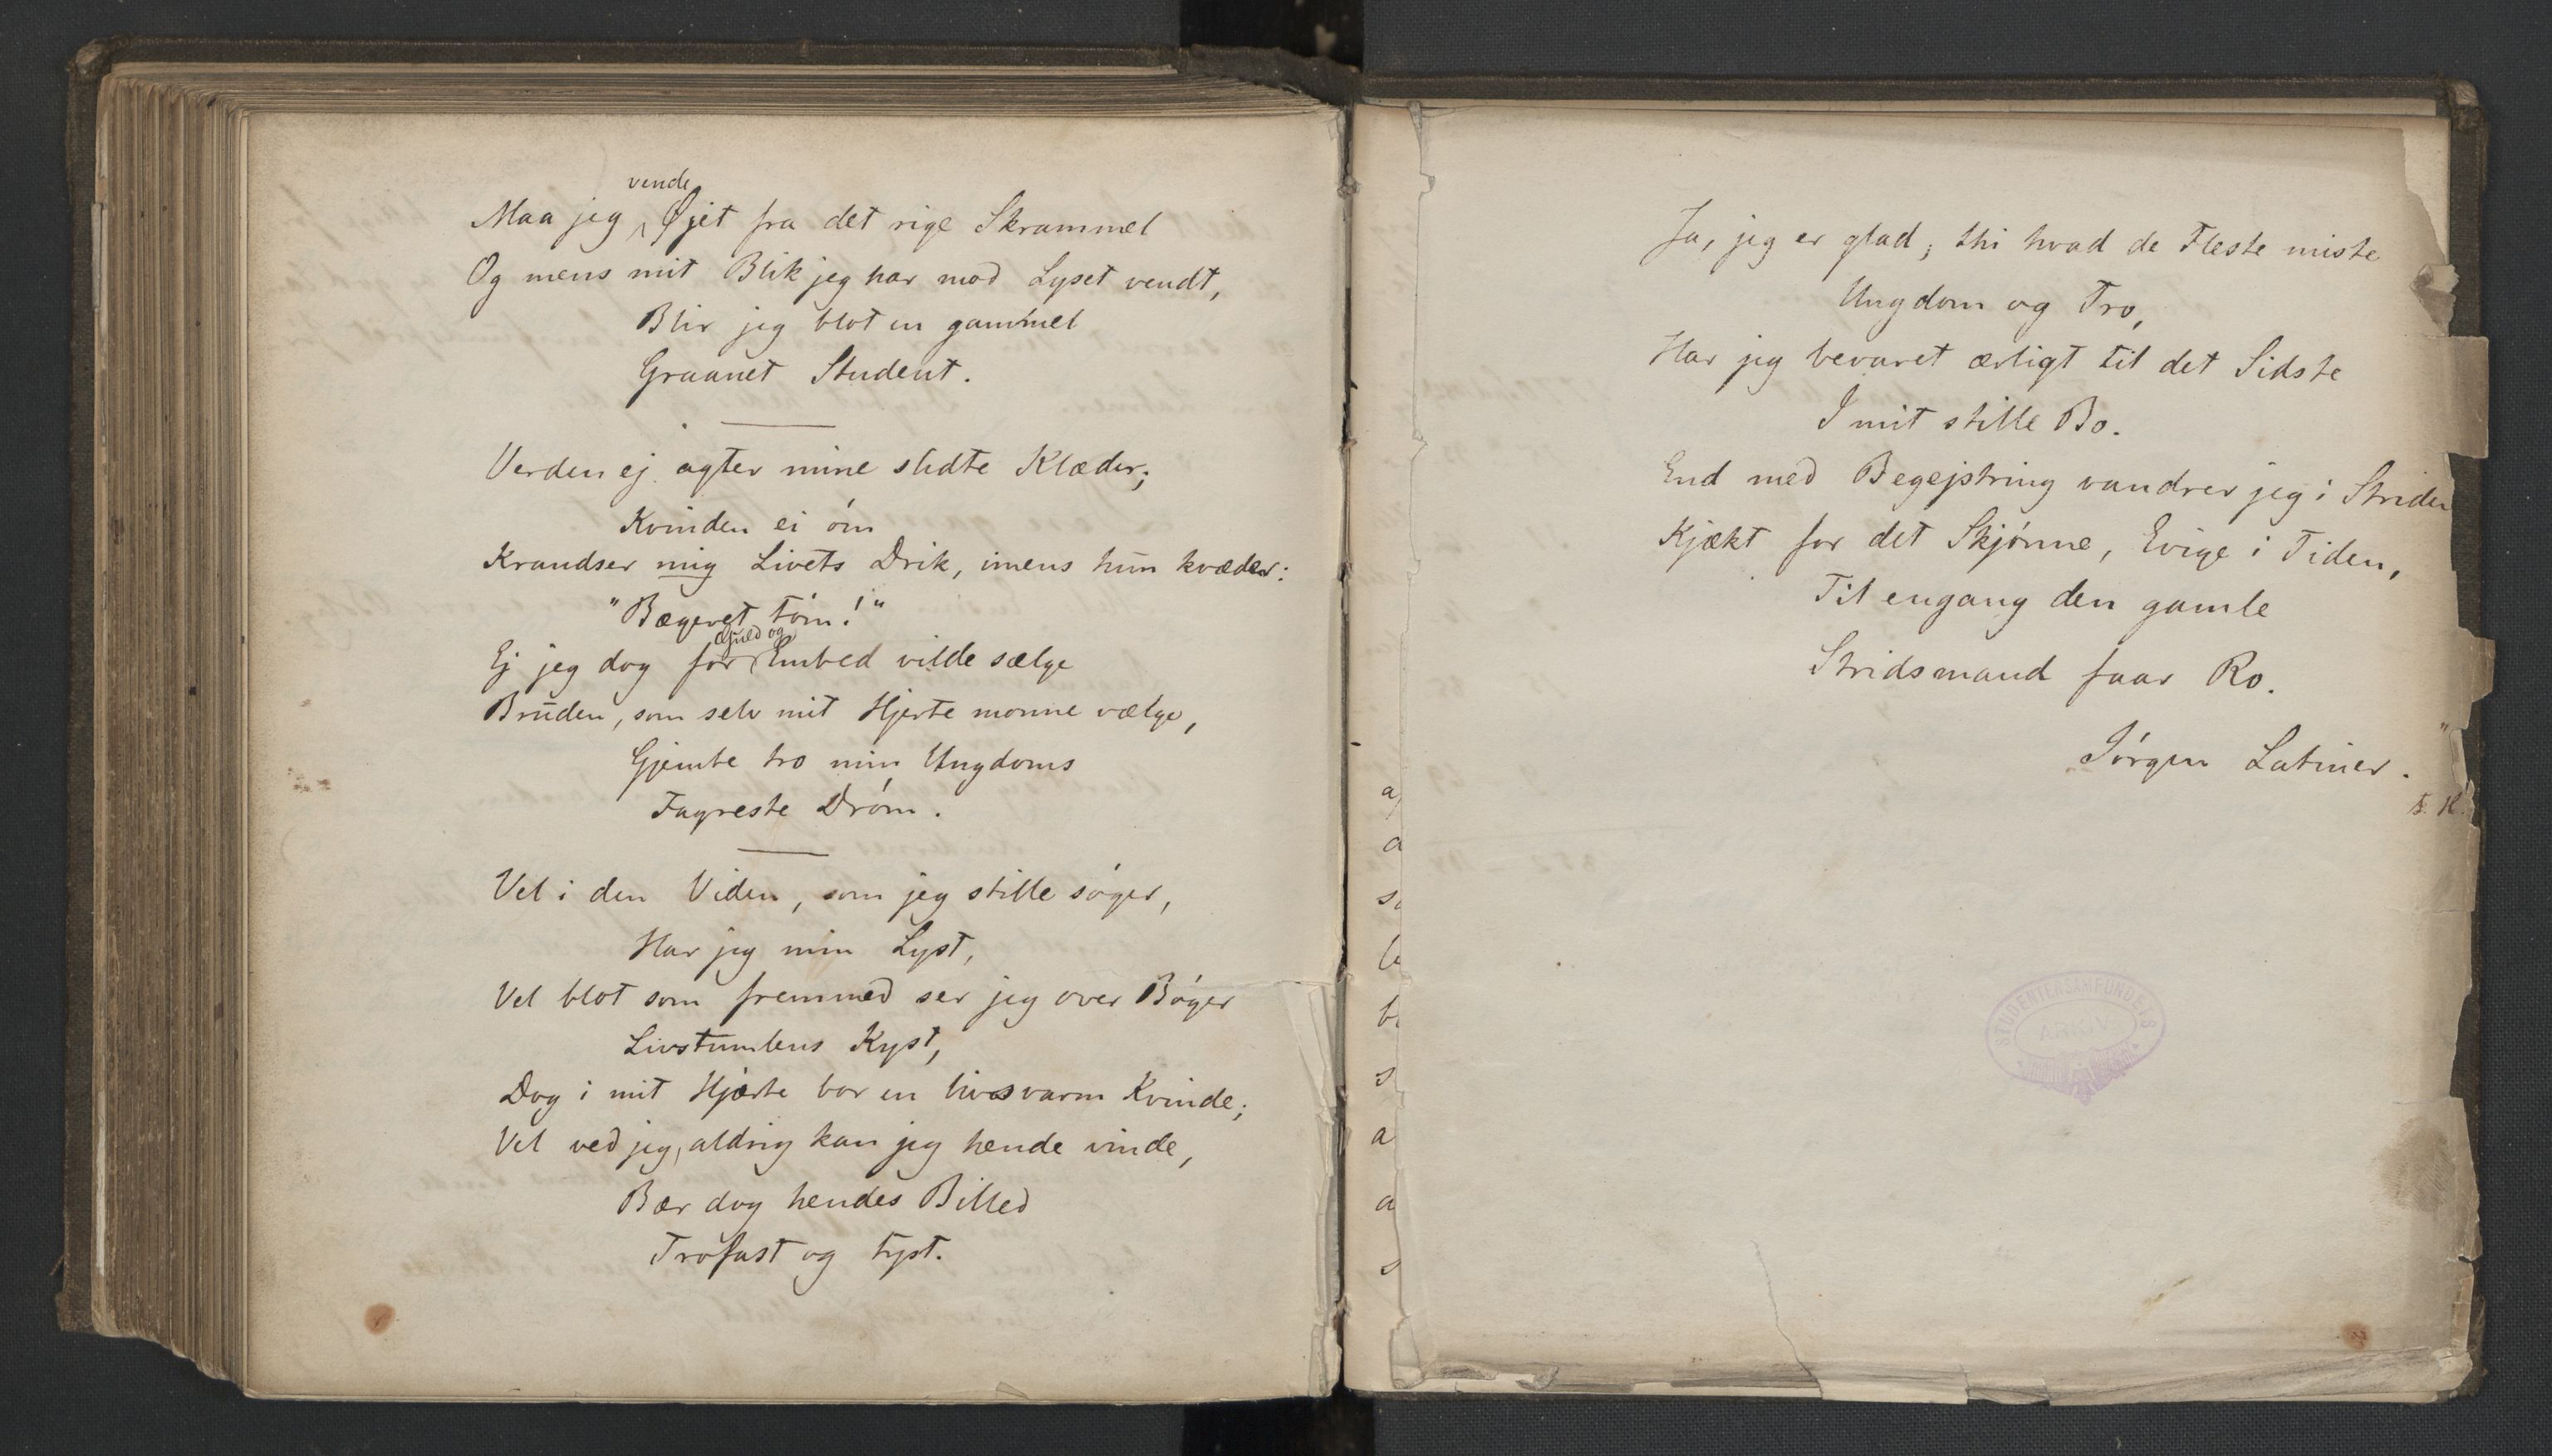 Maa jeg vende Øjet fra det rige Skrammel
Og mens mit Blik jeg har mod Lyset vendt,
Blir jeg blot en gammel
Graanet Student.
Verden ej agter mine slidte Klæder;
Kvinden ei óm
Krandser mig Livets Drik, imens hun kvæder:
"Bægeret tóm!"
Ej jeg dog for Guld og Embed vilde sælge
Bruden, som selv mit Hjerte monne vælge,
Gjemte tro min Ungdoms
Fagreste Dróm.
Vel i den Viden, som jeg stille sóger,
Har jeg min Lyst,
Vel blot som fremmed ser jeg over Bóger
Livstumlens Kyst,
Dog i mit Hjærte bor en livsvarm Kvinde;
Vel ved jeg, aldrig kan jeg hende vinde,
Bær dog hendes Billed
Trofast og tyst.
a
a
s
b
s
a
a
s
Ja, jeg er glad; thi hvad de Fleste miste
Ungdom og Tro,
Har jeg bevaret ærligt til det Sidste
I mit stille Bo.
End med Begejstring vandrer jeg i Striden
Kjækt for det Skjónne, Evige i Tiden,
Til engang den gamle
Stridsmand faar Ro.
Jórgen Latiner.
STUDENTERSAMFUNDETS
ARKIV